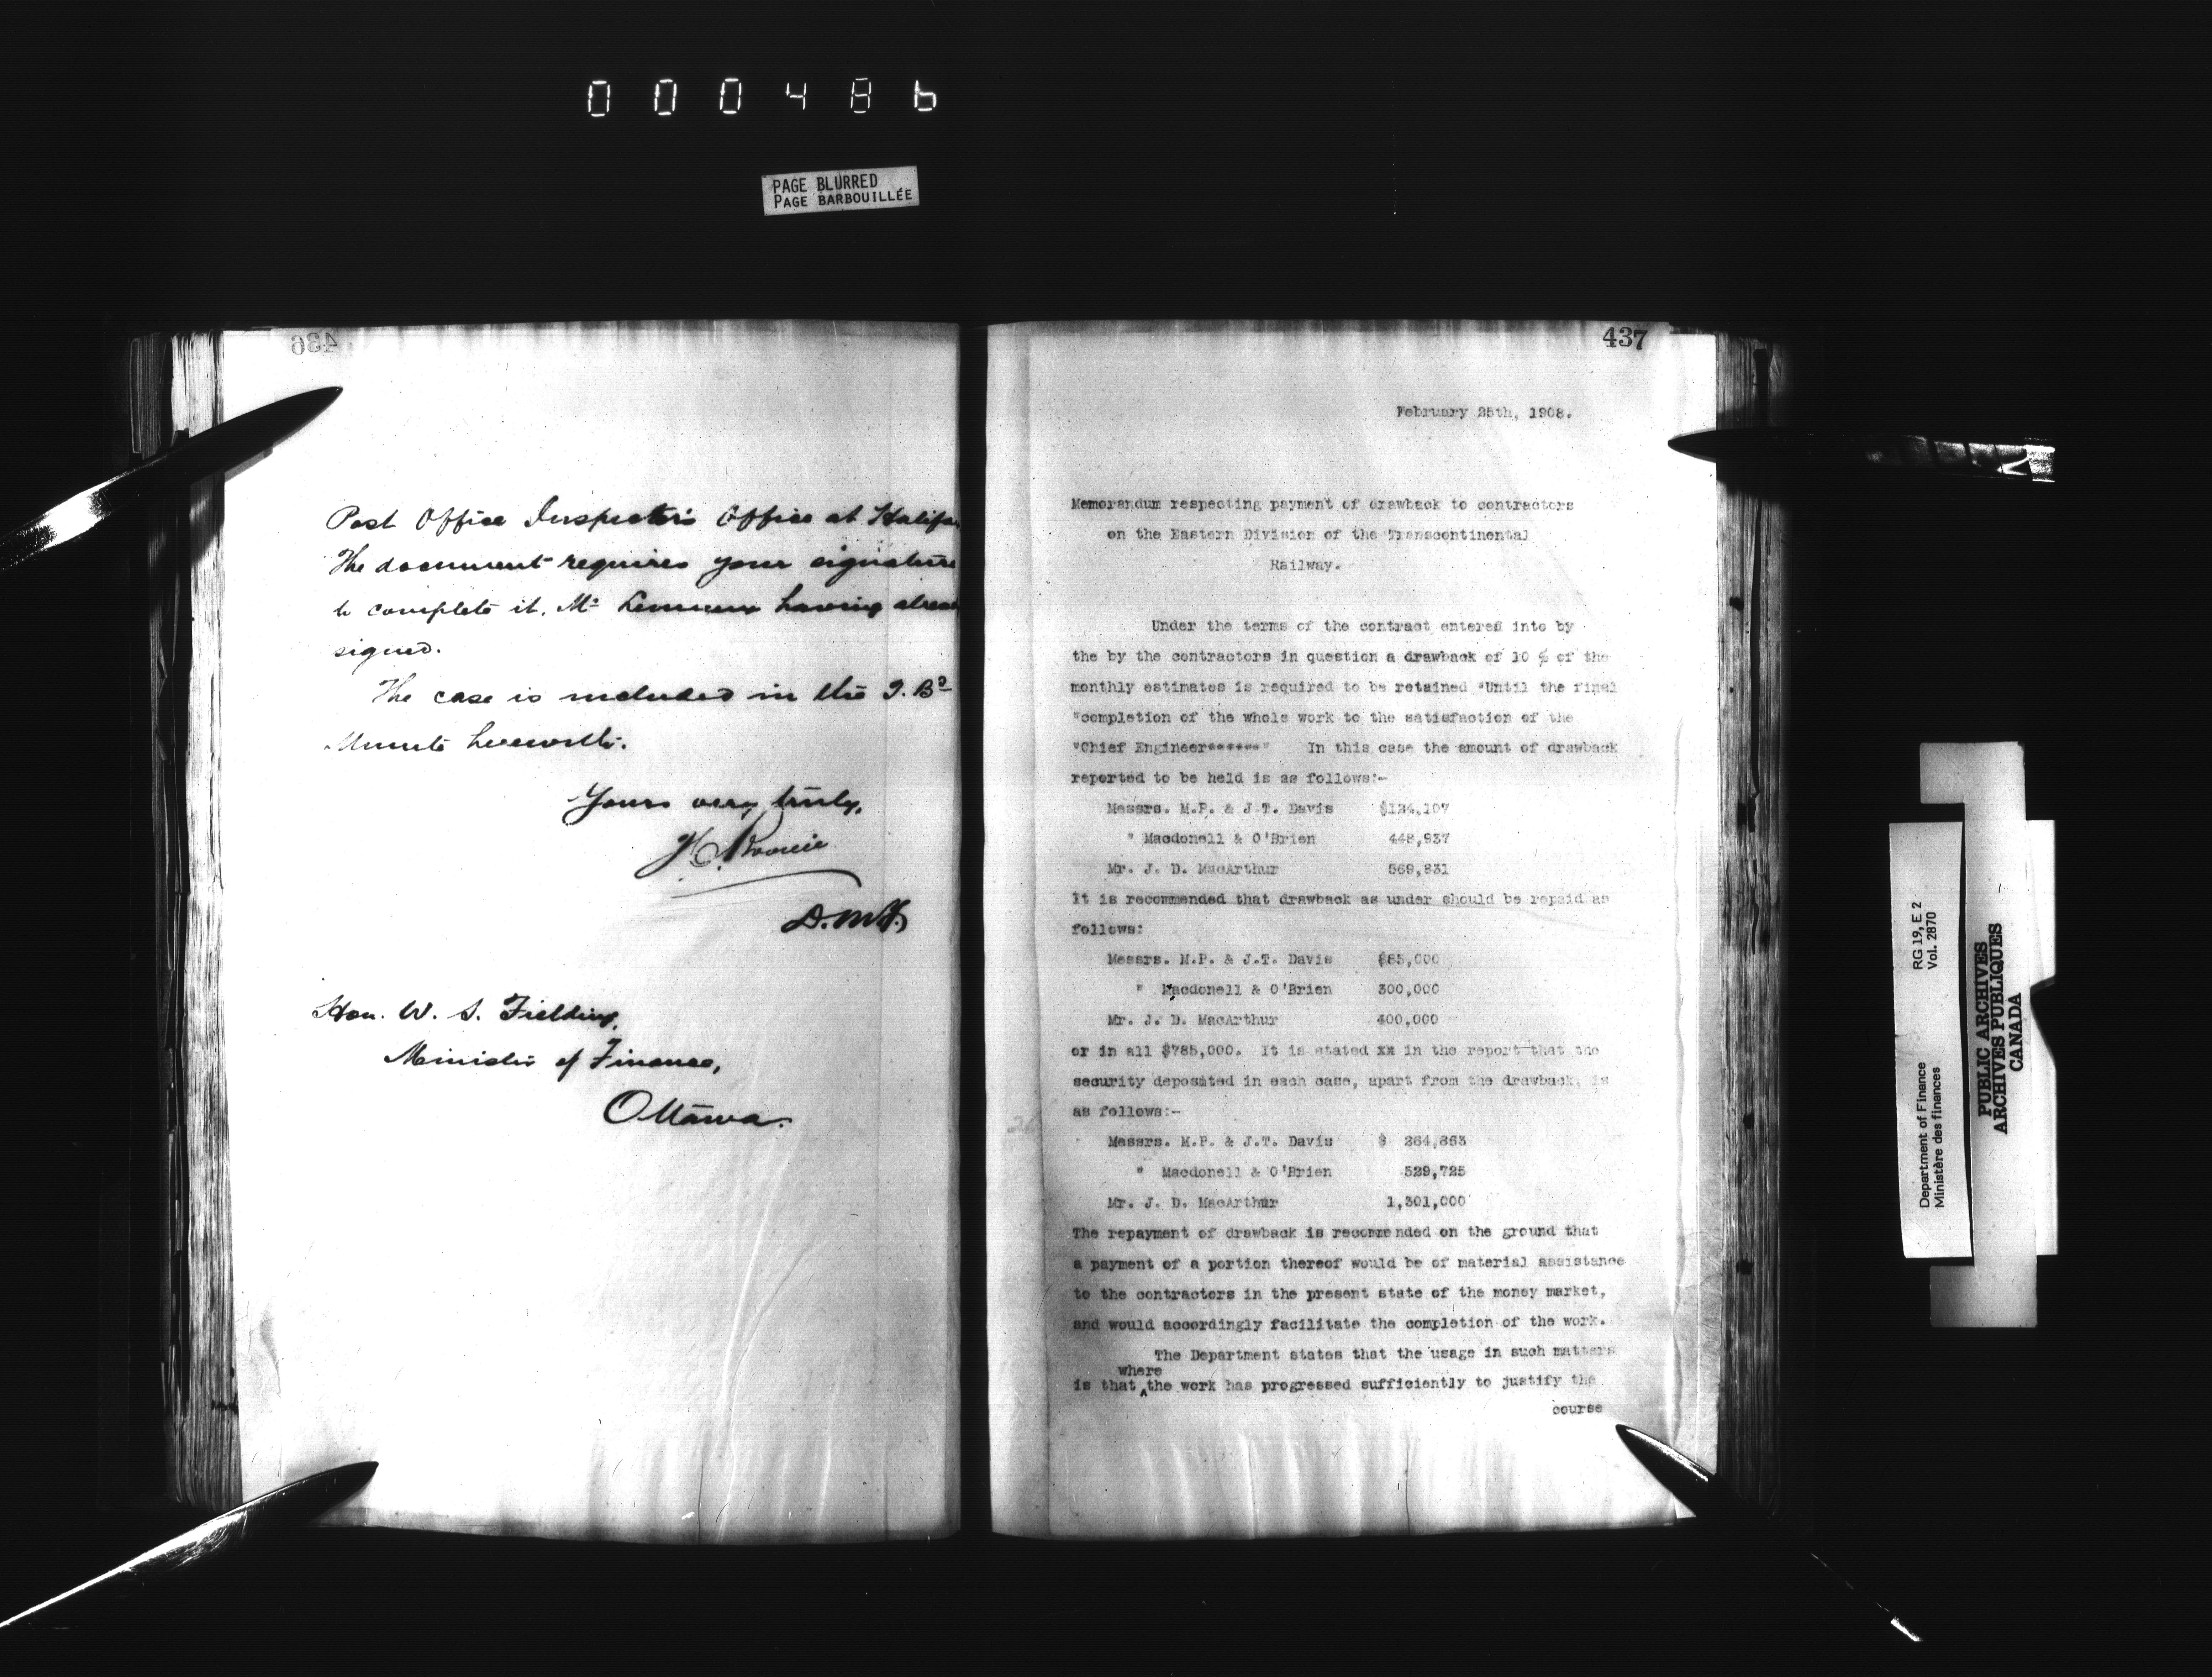 000486
PAGE BLURRED
PAGE BARBOUILLÉE
436
Post Office Inspector's Office at Halifa
The document requires your signature
to complete it, Mr Lemieux having alrea
signed.
The case is included in the T. Bd
Minute herewith.
Yours very truly,
D.M.F.
Hon. W. S. Fielding,
Minister of Finance,
Ottawa.
437
February 25th, 1908.
Memorandum respecting payment of drawback to contractors
on the Eastern Division of the Transcontinental
Railway.
Under the terms of the contract entered into by
the by the contractors in question a drawback of 10 % of the
monthly estimates is required to be retained "Until the final
"completion of the whole work to the satisfaction of the
"Chief Engineer******" In this case the amount of drawback
reported to be held is as follows:-
Messrs. M.P. & J.T. Davis $124,107
" Macdonell & O'Brien 448,937
Mr. J. D. MacArthur 569,831
It is recommended that drawback as under should be repaid as
follows:
Messrs. M.P. & J.T. Davis $85,000
" Macdonell & O'Brien 300,000
Mr. J. D. MacArthur 400,000
or in all $785,000. It is stated xx in the report that the
security deposited in each case, apart from the drawback, is
as follows:-
Messrs. M.P. & J.T. Davis $ 264,863
" Macdonell & O'Brien 529,725
Mr. J. D. MacArthur 1,301,000
The repayment of drawback is recommended on the ground that
a payment of a portion thereof would be of material assistance
to the contractors in the present state of the money market,
and would accordingly facilitate the completion of the work.
The Department states that the usage in such matters
where
is that ^the work has progressed sufficiently to justify the
course
Department of Finance RG 19, E 2
Ministère des finances Vol. 2870
PUBLIC ARCHIVES
ARCHIVES PUBLIQUES
CANADA